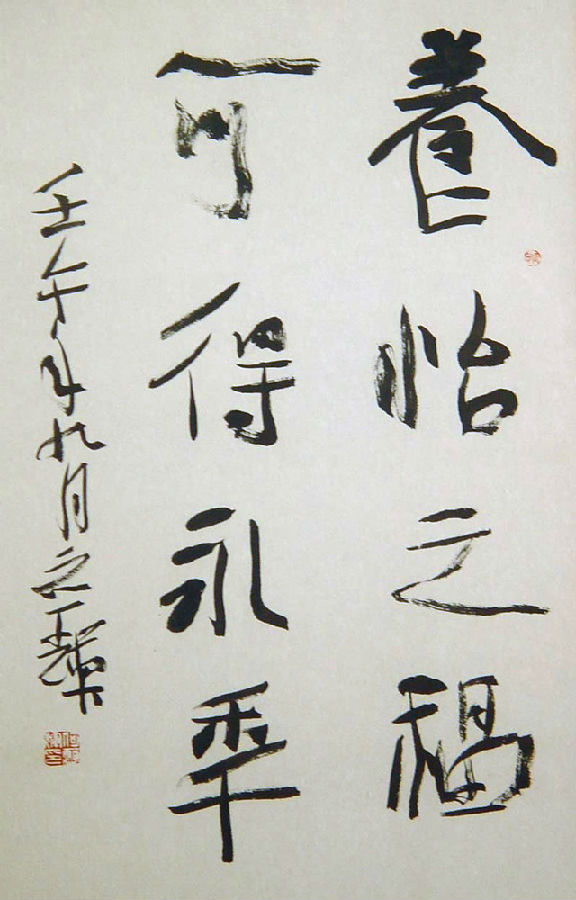 養怡之福
可得永年
壬午年九月